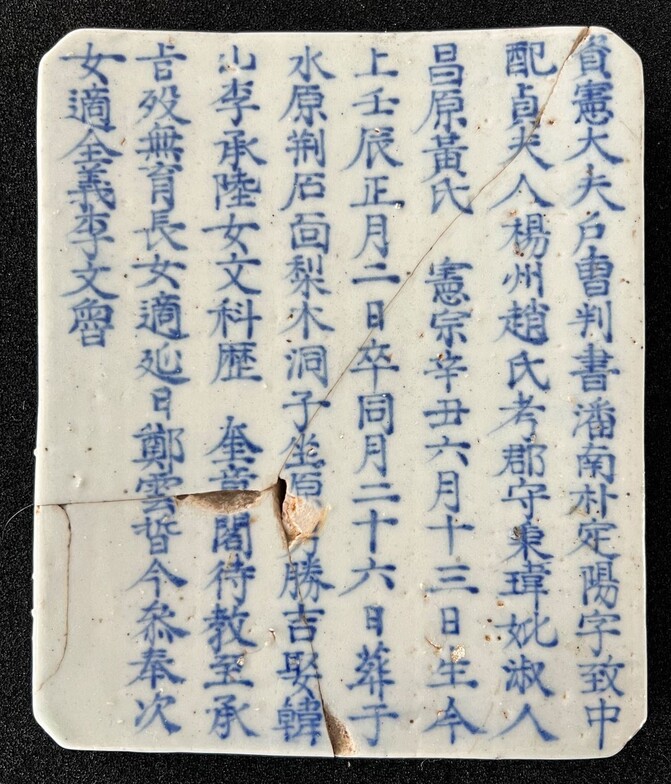 資憲大夫戶曹判書潘南朴定陽字致中
配貞夫人楊州趙氏考郡守秉瑋妣淑人
昌原黃氏 憲宗辛丑六月十三日生今
上壬辰正月二日卒同月二十六日葬于
水原荊石面梨木洞子坐原勝吉娶韓
山李承陸女文科歷 奎章閣待敎至承
旨歿無育長女適延日鄭雲晳今叅奉次
女適全義李文魯